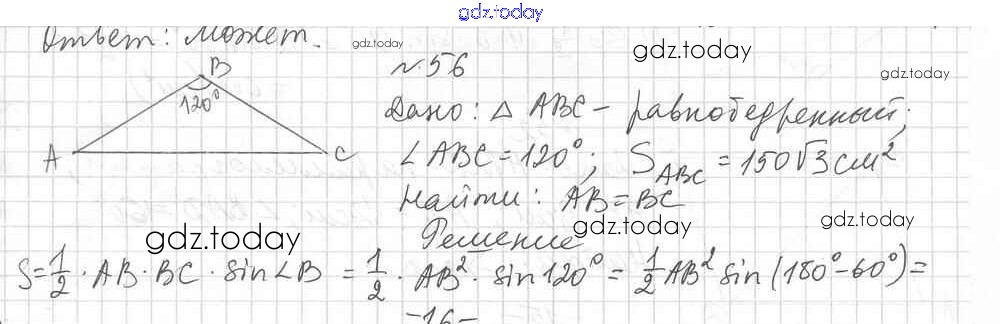 gdz.today
Ответ: может.
gdz.today
gdz.today
gdz.today
B
120°
A
C
№56
Дано: △ ABC – равнобедренный;
∠ABC = 120°; S_ABC = 150√3 см²
Найти: AB = BC
gdz.today
gdz.today
gdz.today
Решение
S = 1/2 · AB · BC · sin∠B = 1/2 · AB² · sin 120° = 1/2 AB² sin(180° - 60°) =
-16-